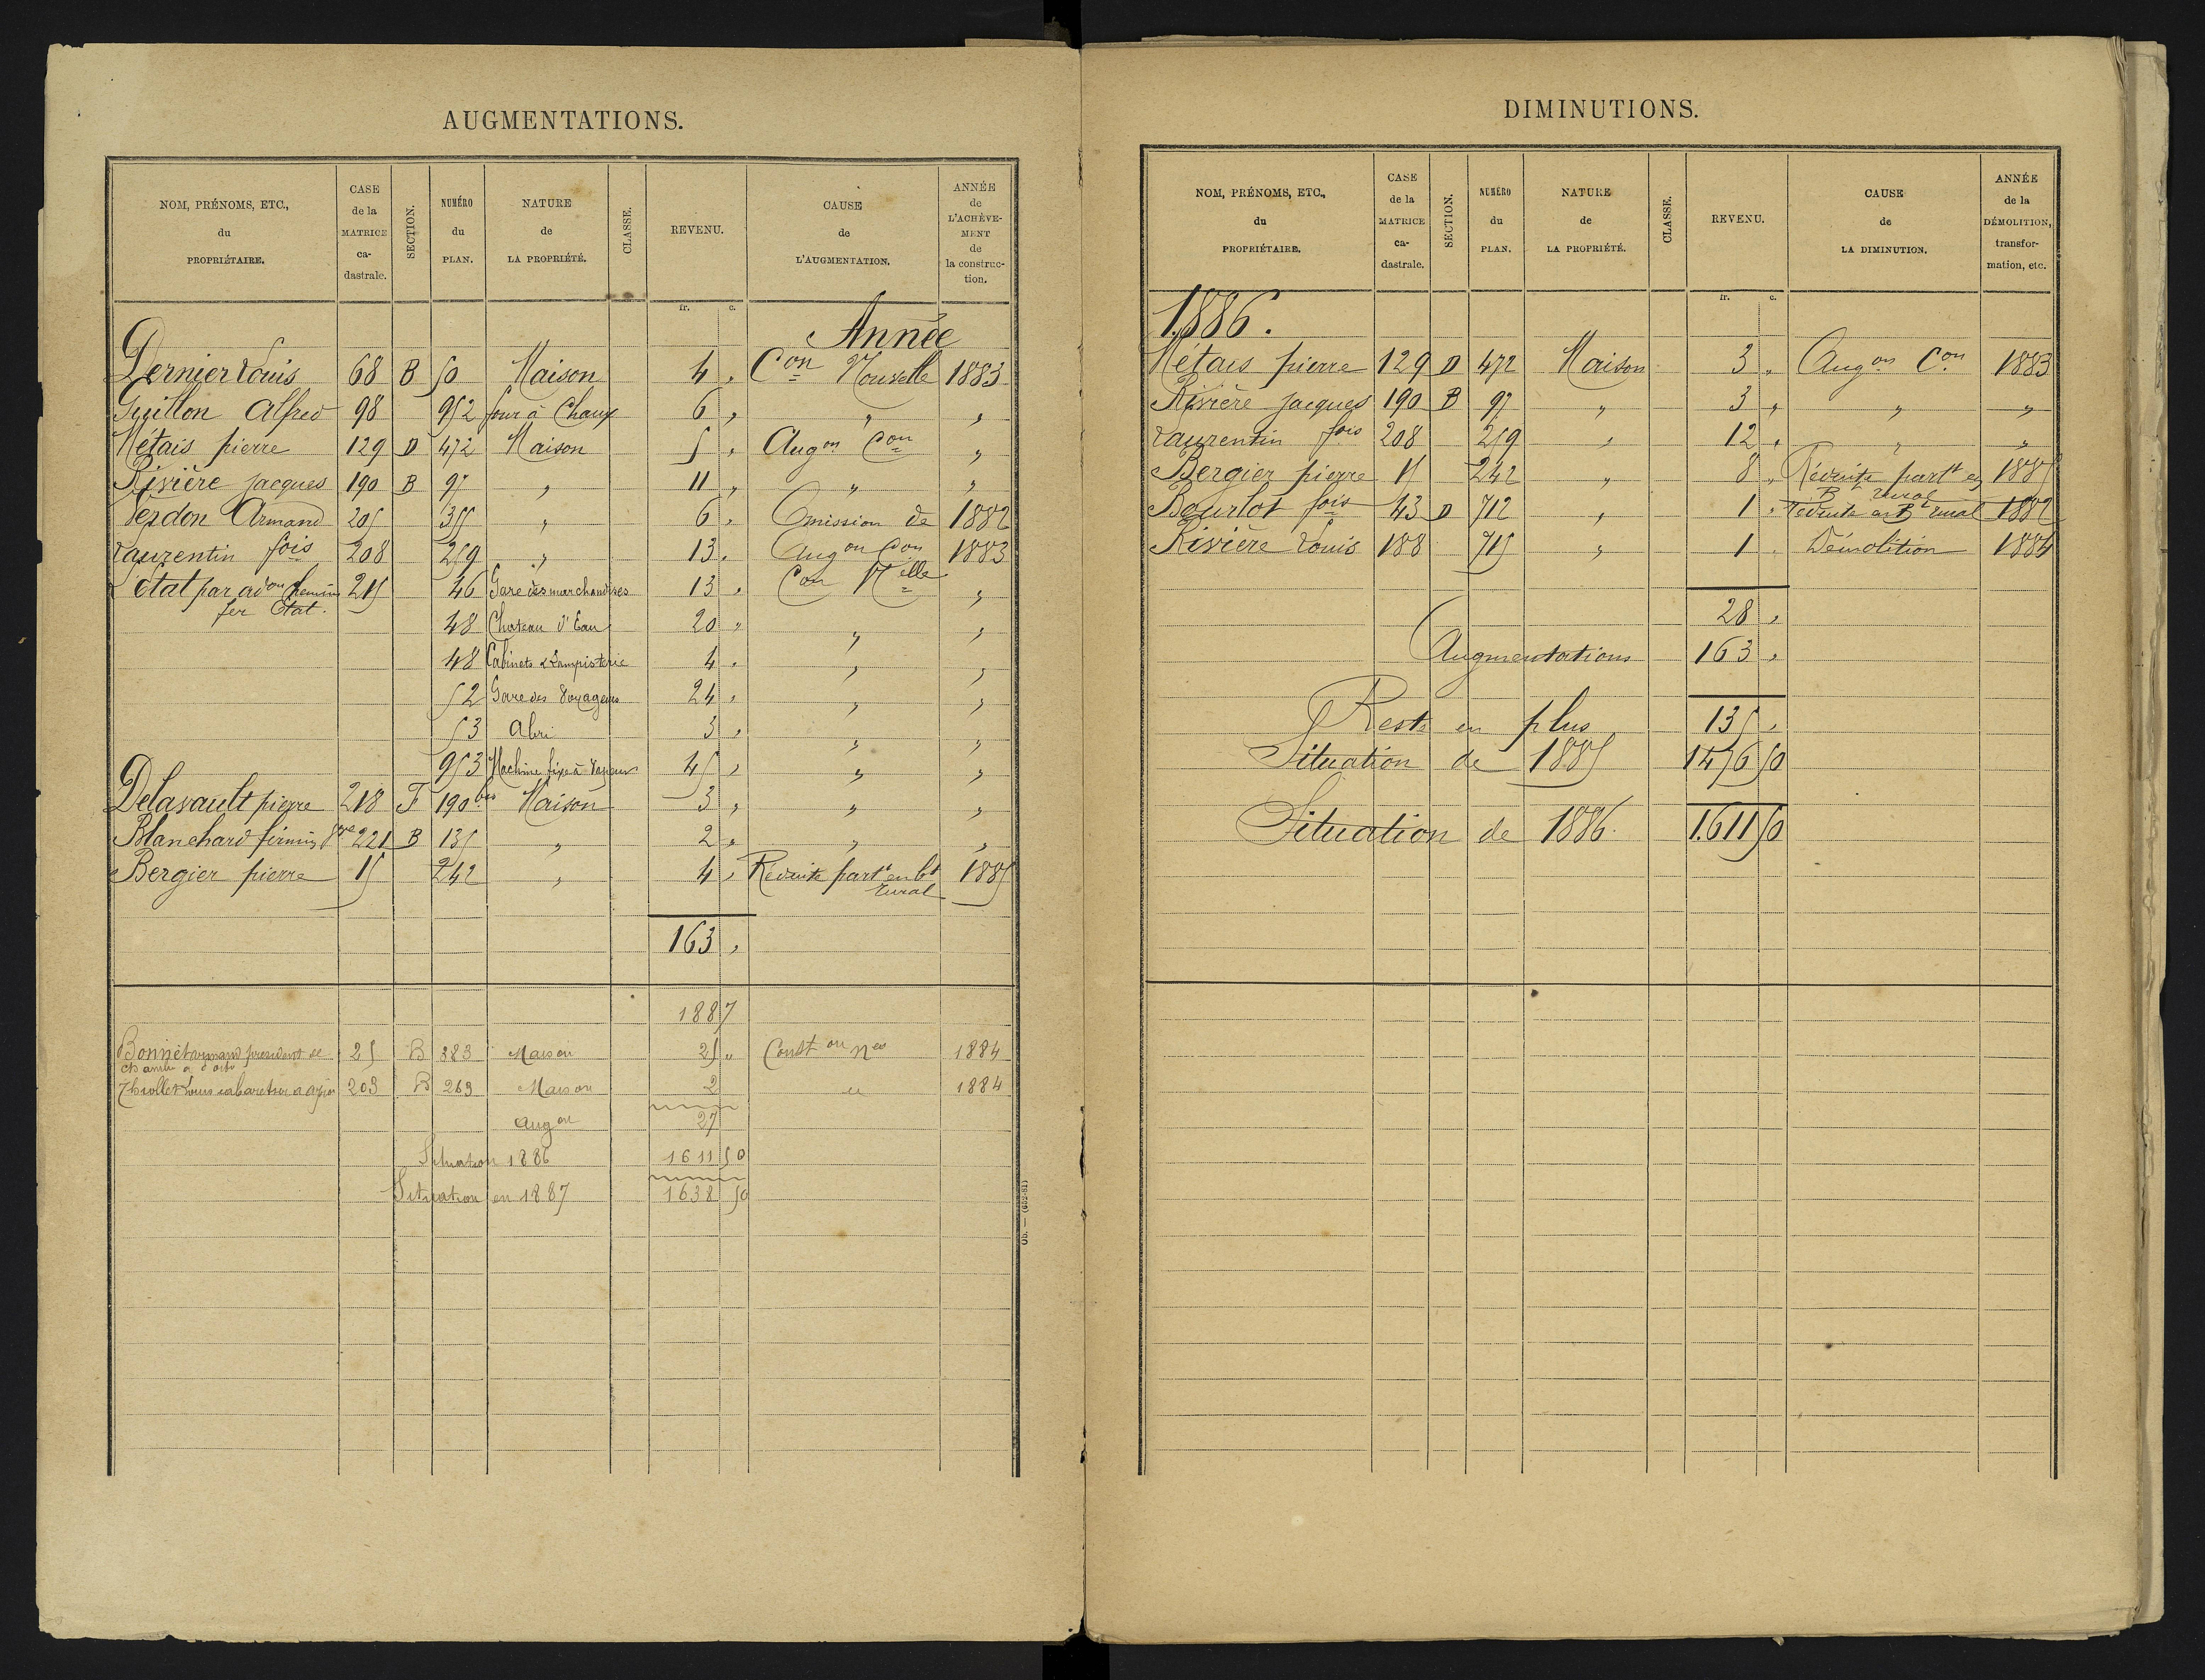 AUGMENTATIONS.
NOM, PRÉNOMS, ETC., du PROPRIÉTAIRE. CASE de la MATRICE ca-dastrale. SECTION. NUMÉRO du PLAN. NATURE de LA PROPRIÉTÉ. CLASSE. REVENU. CAUSE de L'AUGMENTATION. ANNÉE de L'ACHÈVE-MENT de la construc-tion.
fr. c.
Année
Dernier Louis 68 B 50 Maison 4 " Con Nouvelle 1883
Guillon Alfred 98 952 four à Chaux 6 " " "
Métais pierre 129 D 472 Maison 5 " Augon Con "
Rivière jacques 190 B 97 " 11 " " "
Verdon Armand 205 355 " 6 " Omission de 1882
Laurentin fois 208 259 " 13 " Augon Con 1883
Etat par adon chemins 215 46 Gare des marchandises 13 " Con Nelle "
fer Etat.
48 Chateau d'Eau 20 " " "
48 Cabinets & Lampisterie 4 " " "
52 Gare des Voyageurs 24 " " "
53 Abri 3 " " "
953 Machine fixe à Vapeur 45 " " "
Delavault pierre 218 F 190 bis Maison 3 " " "
Blanchard firmin 221 B 135 " 2 " " "
Bergier pierre 15 242 " 4 " Réduite partt en bt 1885
rural
163 "
1887
Bonnet armand president de 25 B 883 Maison 25 " Conston nes 1884
chambre a
Thiollet Louis cabaretier a 203 B 263 Maison 2 " 1884
Augon 27
Situation 1886 1611 50
Situation en 1887 1638 50
Ob. — (652-81)
DIMINUTIONS.
NOM, PRÉNOMS, ETC., du PROPRIÉTAIRE. CASE de la MATRICE ca-dastrale. SECTION. NUMÉRO du PLAN. NATURE de LA PROPRIÉTÉ. CLASSE. REVENU. CAUSE de LA DIMINUTION. ANNÉE de la DÉMOLITION, transfor-mation, etc.
fr. c.
1886.
Métais pierre 129 D 472 Maison 3 " Augon Con 1883
Rivière jacques 190 B 97 " 3 " " "
Laurentin fois 208 259 " 12 " " "
Bergier pierre 15 242 " 8 " Réduite partt en 1885
Bt rural
Bourlot fois 43 D 712 " 1 " Réduite en Bt rural 1882
Rivière Louis 188 715 " 1 " Démolition 1884
28 "
Augmentations 163 "
Reste en plus 135 "
Situation de 1885 1476 50
Situation de 1886. 1.611 50